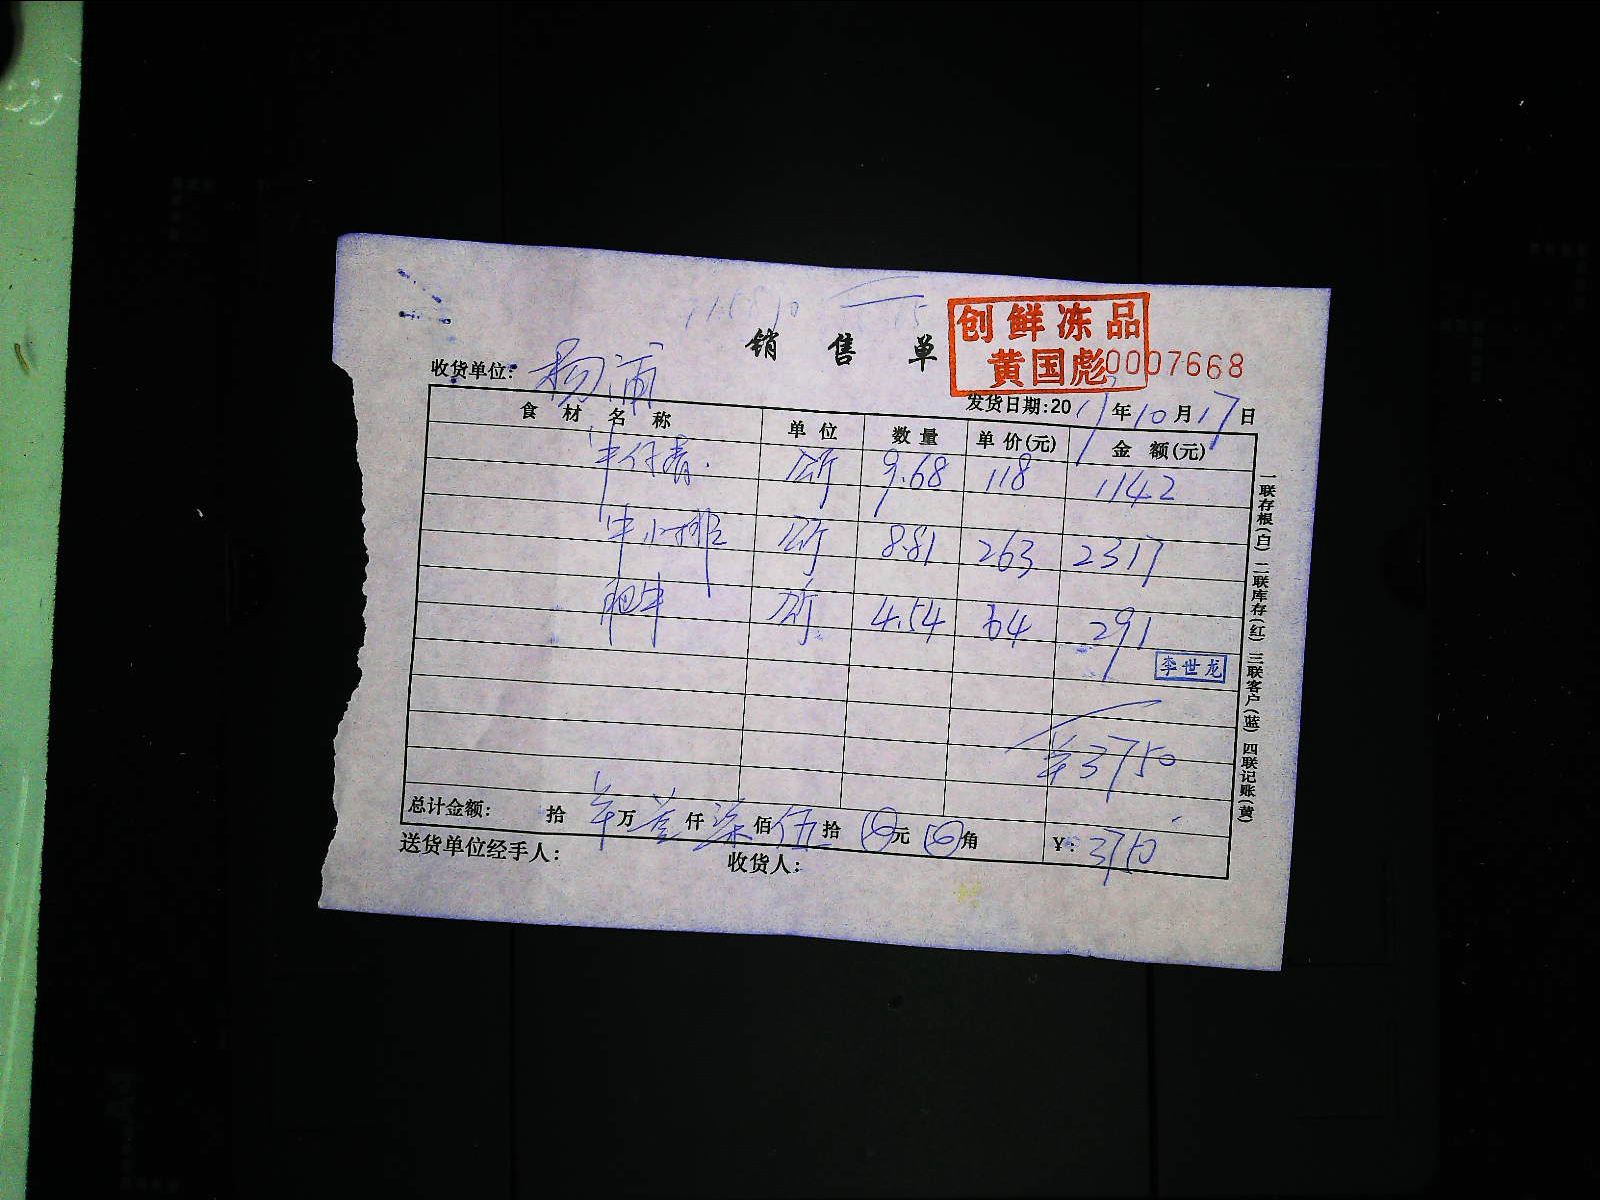 创鲜冻品
黄国彪
销售单
0007668
收货单位: 杨浦
发货日期:2017年10月17日
食材名称 单位 数量 单价(元) 金额(元)
牛仔骨 公斤 9.68 118 1142
牛小排 公斤 8.81 263 2317
肥牛 公斤 4.54 64 291
李世龙
¥3750
总计金额: 拾 万 叁仟 柒佰 伍拾 元 角 ¥: 3750
送货单位经手人: 收货人:
一联存根(白) 二联库存(红) 三联客户(蓝) 四联记账(黄)